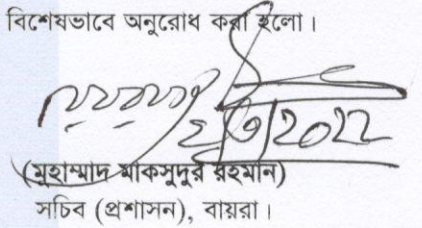 বিশেষভাবে অনুরোধ করা হলো।
2022
(মুহাম্মাদ মাকসুদুর রহমান)
সচিব (প্রশাসন), বায়রা।